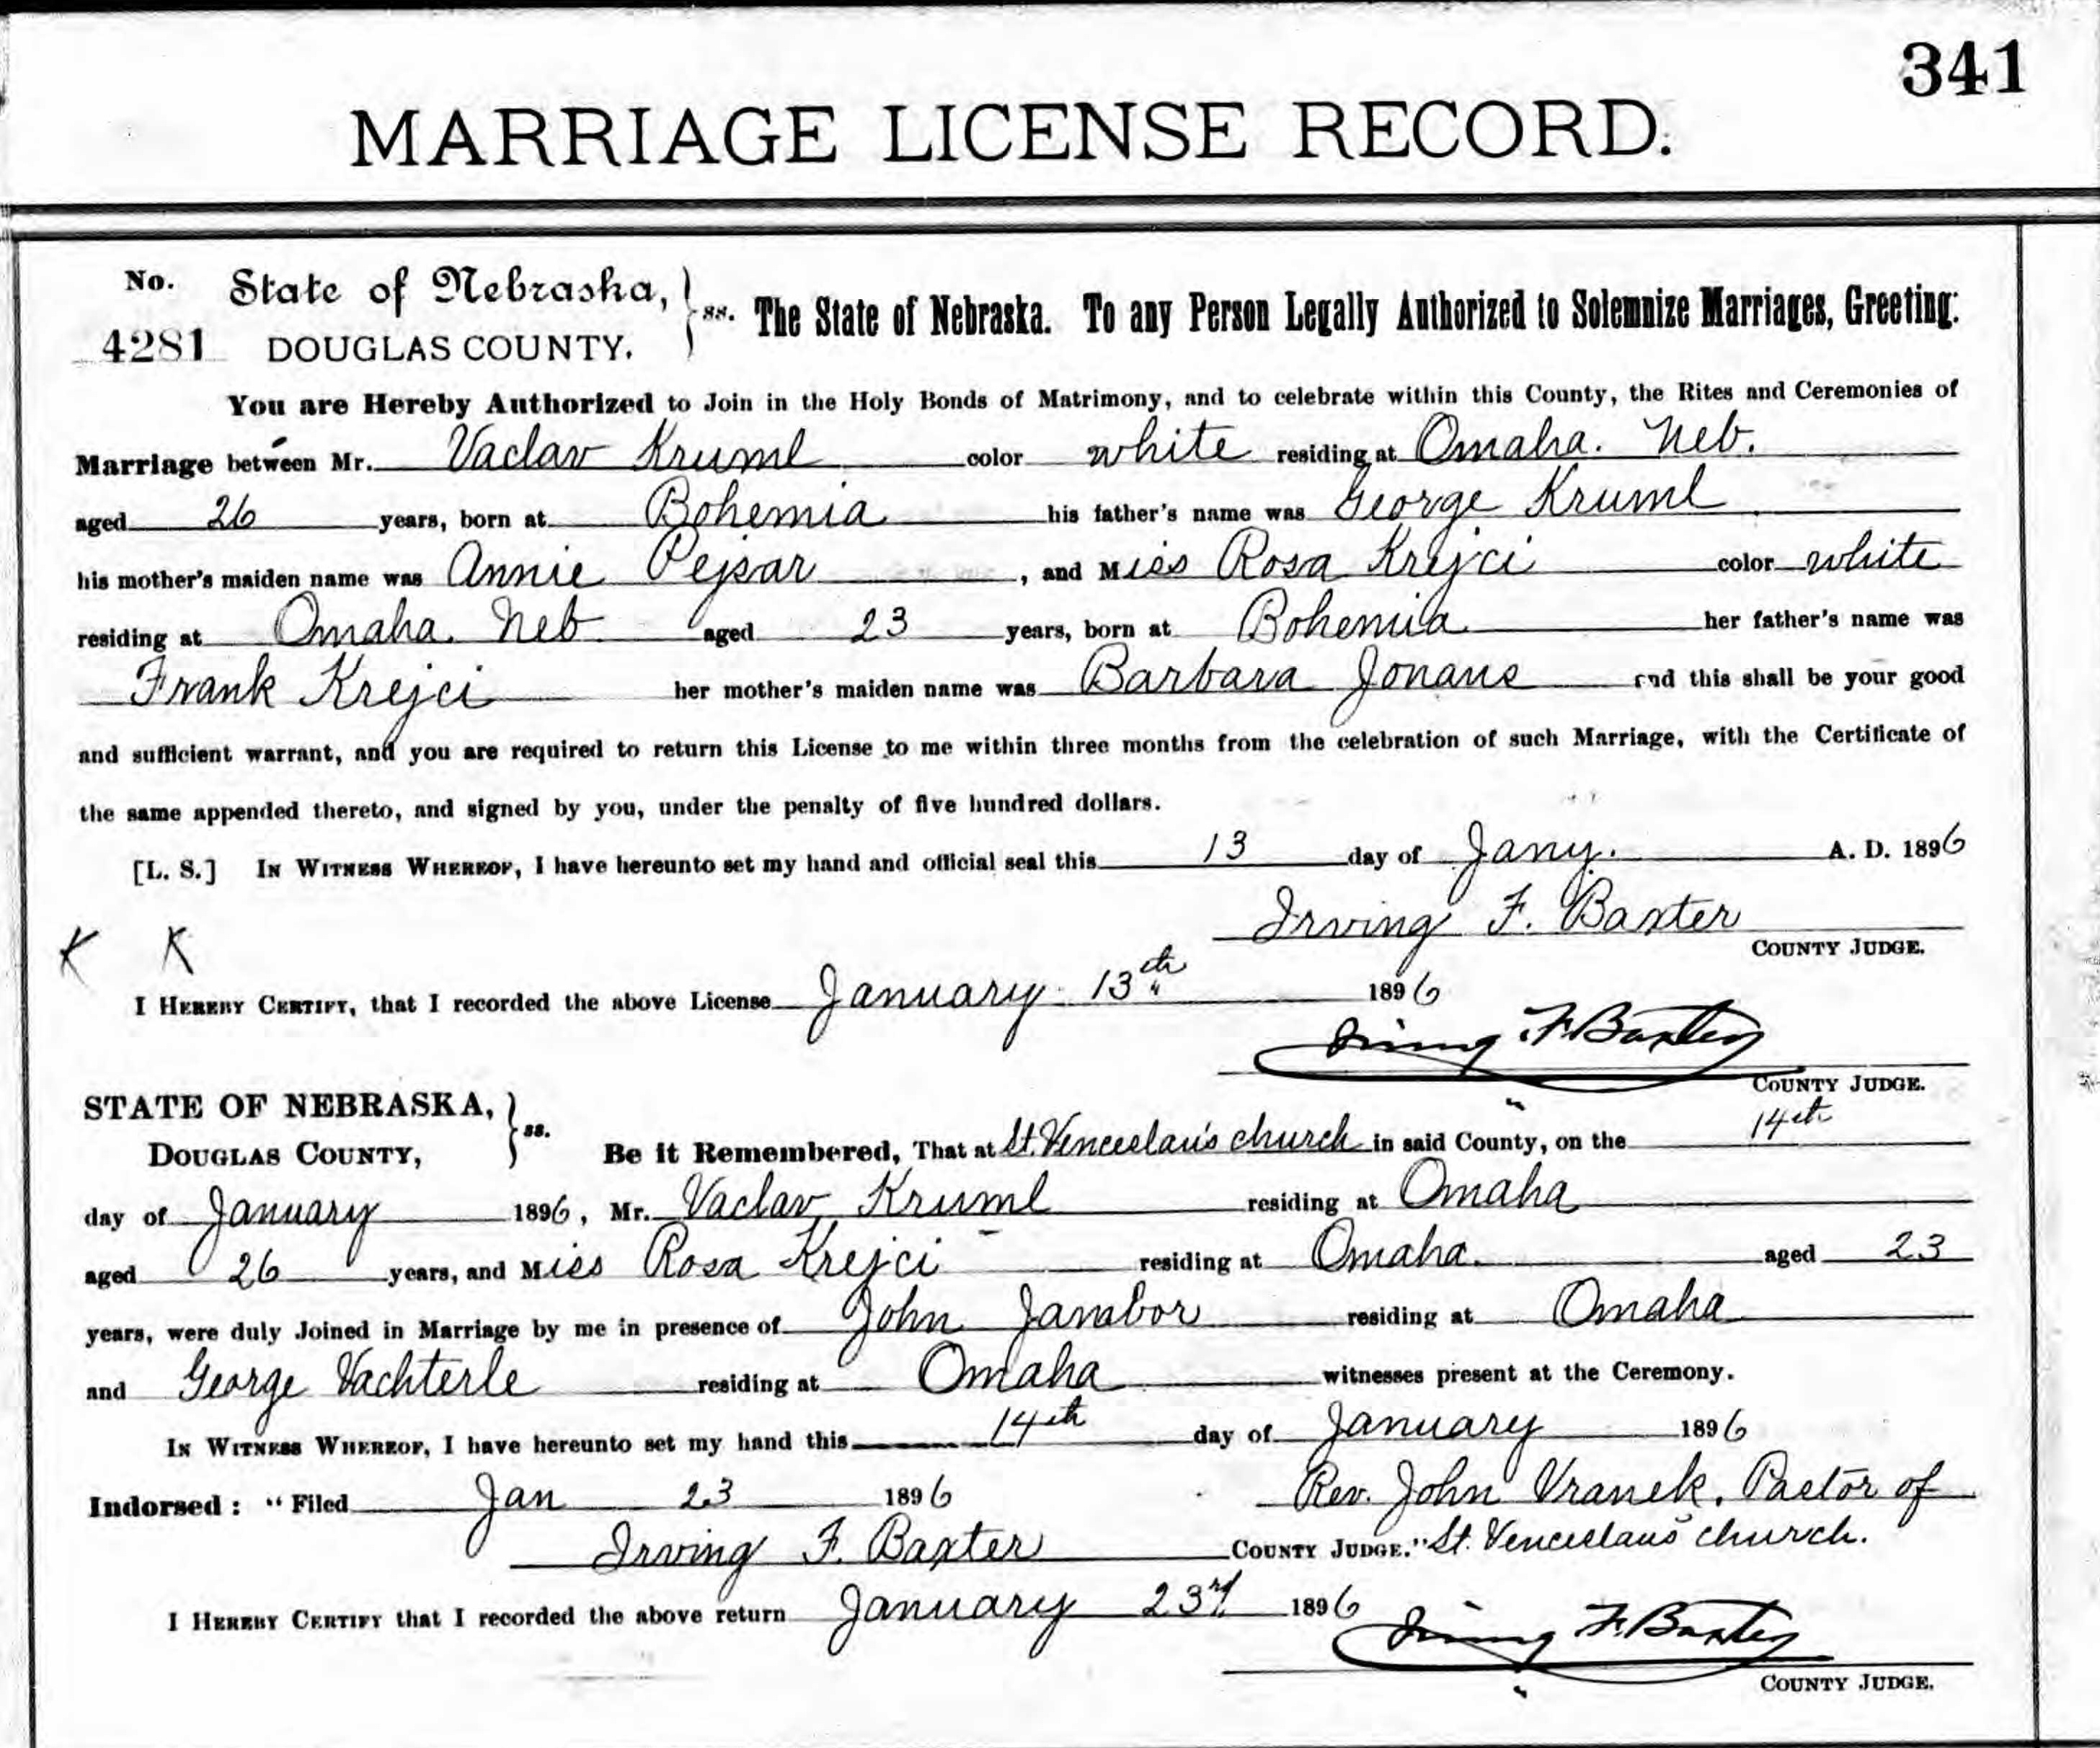 341
MARRIAGE LICENSE RECORD.
No. State of Nebraska, } ss. The State of Nebraska. To any Person Legally Authorized to Solemnize Marriages, Greeting:
4281 DOUGLAS COUNTY.
You are Hereby Authorized to Join in the Holy Bonds of Matrimony, and to celebrate within this County, the Rites and Ceremonies of
Marriage between Mr. Vaclav Kruml color white residing at Omaha. Neb.
aged 26 years, born at Bohemia his father's name was George Kruml
his mother's maiden name was Annie Pejsar, and Miss Rosa Krejci color white
residing at Omaha. Neb aged 23 years, born at Bohemia her father's name was
Frank Krejci her mother's maiden name was Barbara Jonaus and this shall be your good
and sufficient warrant, and you are required to return this License to me within three months from the celebration of such Marriage, with the Certificate of
the same appended thereto, and signed by you, under the penalty of five hundred dollars.
[L. S.] IN WITNESS WHEREOF, I have hereunto set my hand and official seal this 13 day of Jany. A. D. 1896
Irving F. Baxter
COUNTY JUDGE.
K K
I HEREBY CERTIFY, that I recorded the above License January 13th 1896
Irving F. Baxter
COUNTY JUDGE.
STATE OF NEBRASKA, } ss.
DOUGLAS COUNTY, Be it Remembered, That at St. Venceslau's church in said County, on the 14th
day of January 1896, Mr. Vaclav Kruml residing at Omaha
aged 26 years, and Miss Rosa Krejci residing at Omaha. aged 23
years, were duly Joined in Marriage by me in presence of John Jambor residing at Omaha
and George Vachterle residing at Omaha witnesses present at the Ceremony.
IN WITNESS WHEREOF, I have hereunto set my hand this 14th day of January 1896
Indorsed: "Filed Jan 23 1896 Rev. John Vranek, Pastor of
Irving F. Baxter COUNTY JUDGE." St. Venceslaus church.
I HEREBY CERTIFY that I recorded the above return January 23rd 1896
Irving F. Baxter
COUNTY JUDGE.